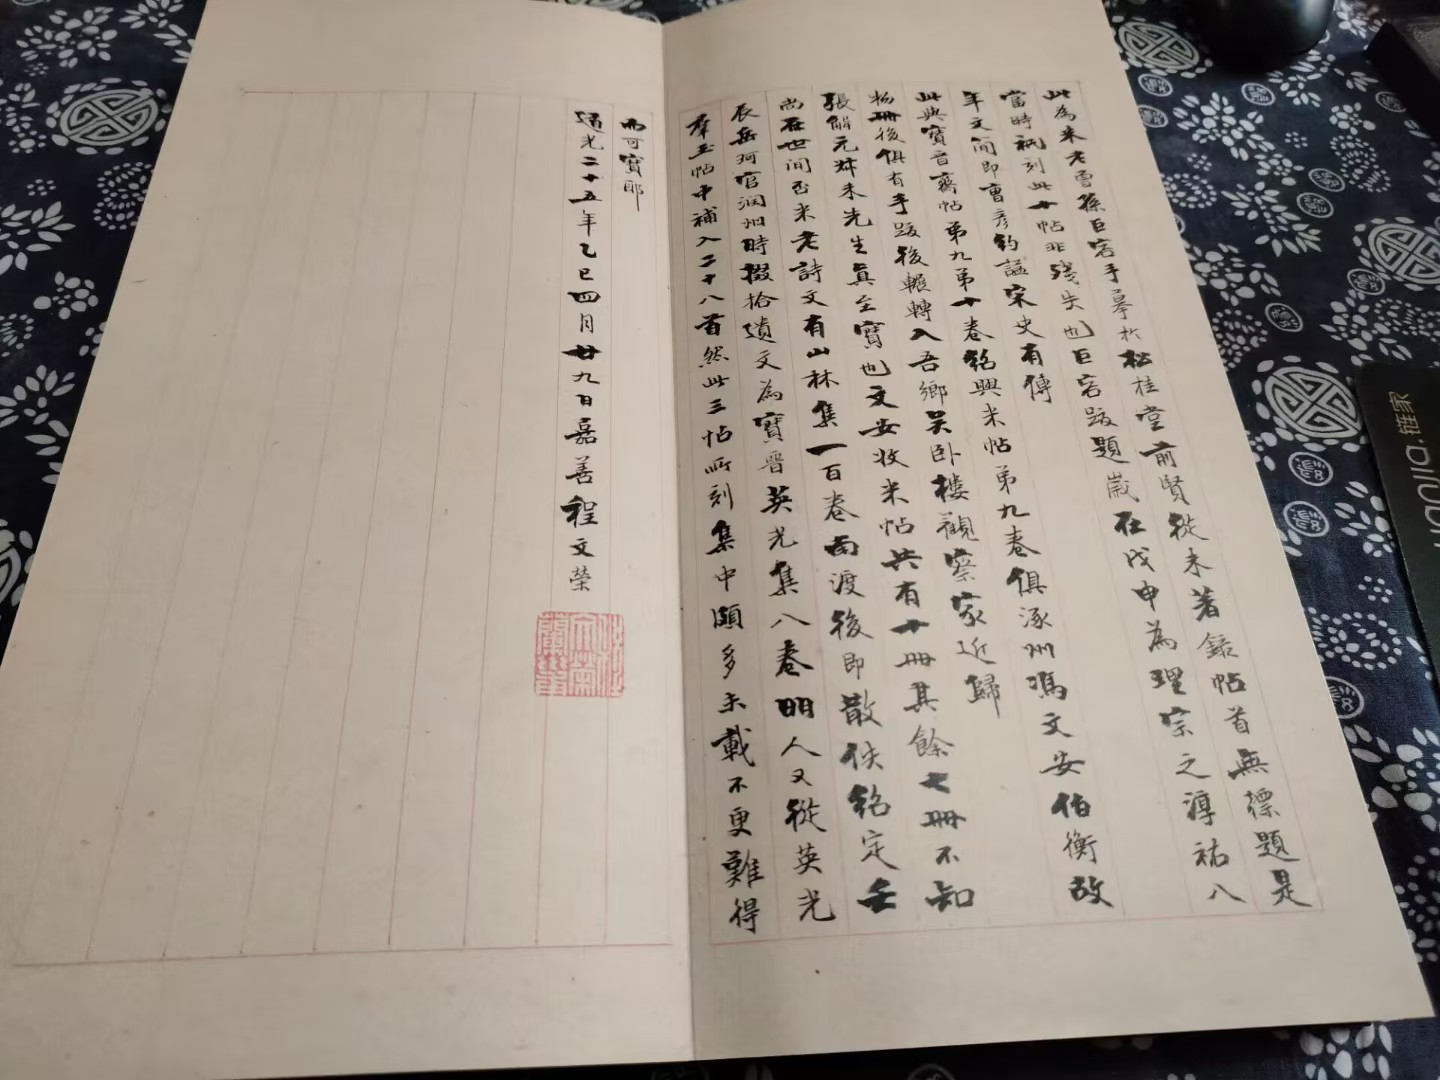 此為米老曾孫巨容手摹於松桂堂前賢從未著錄帖首無標題是
當時祇刻此十帖非殘失也巨容跋題歲在戊申為理宗之淳祐八
年文間即曹彥約謚宋史有傳
此與寶晉齋帖第九第十卷紹興米帖第九卷俱涿州馮文安伯衡故
物冊後俱有手跋後輾轉入吾鄉吳卧樓觀察家近歸
張解元叔未先生真至寶也文安收米帖共有十冊其餘七冊不知
尚在世間否米老詩文有山林集一百卷南渡後即散佚紹定壬
辰岳珂官潤州時掇拾遺文為寶晉英光集八卷明人又從英光
羣玉帖中補入二十八首然此三帖所刻集中頗多未載不更難得
而可寶耶
道光二十五年乙巳四月廿九日嘉善程文榮
huanjia.推家